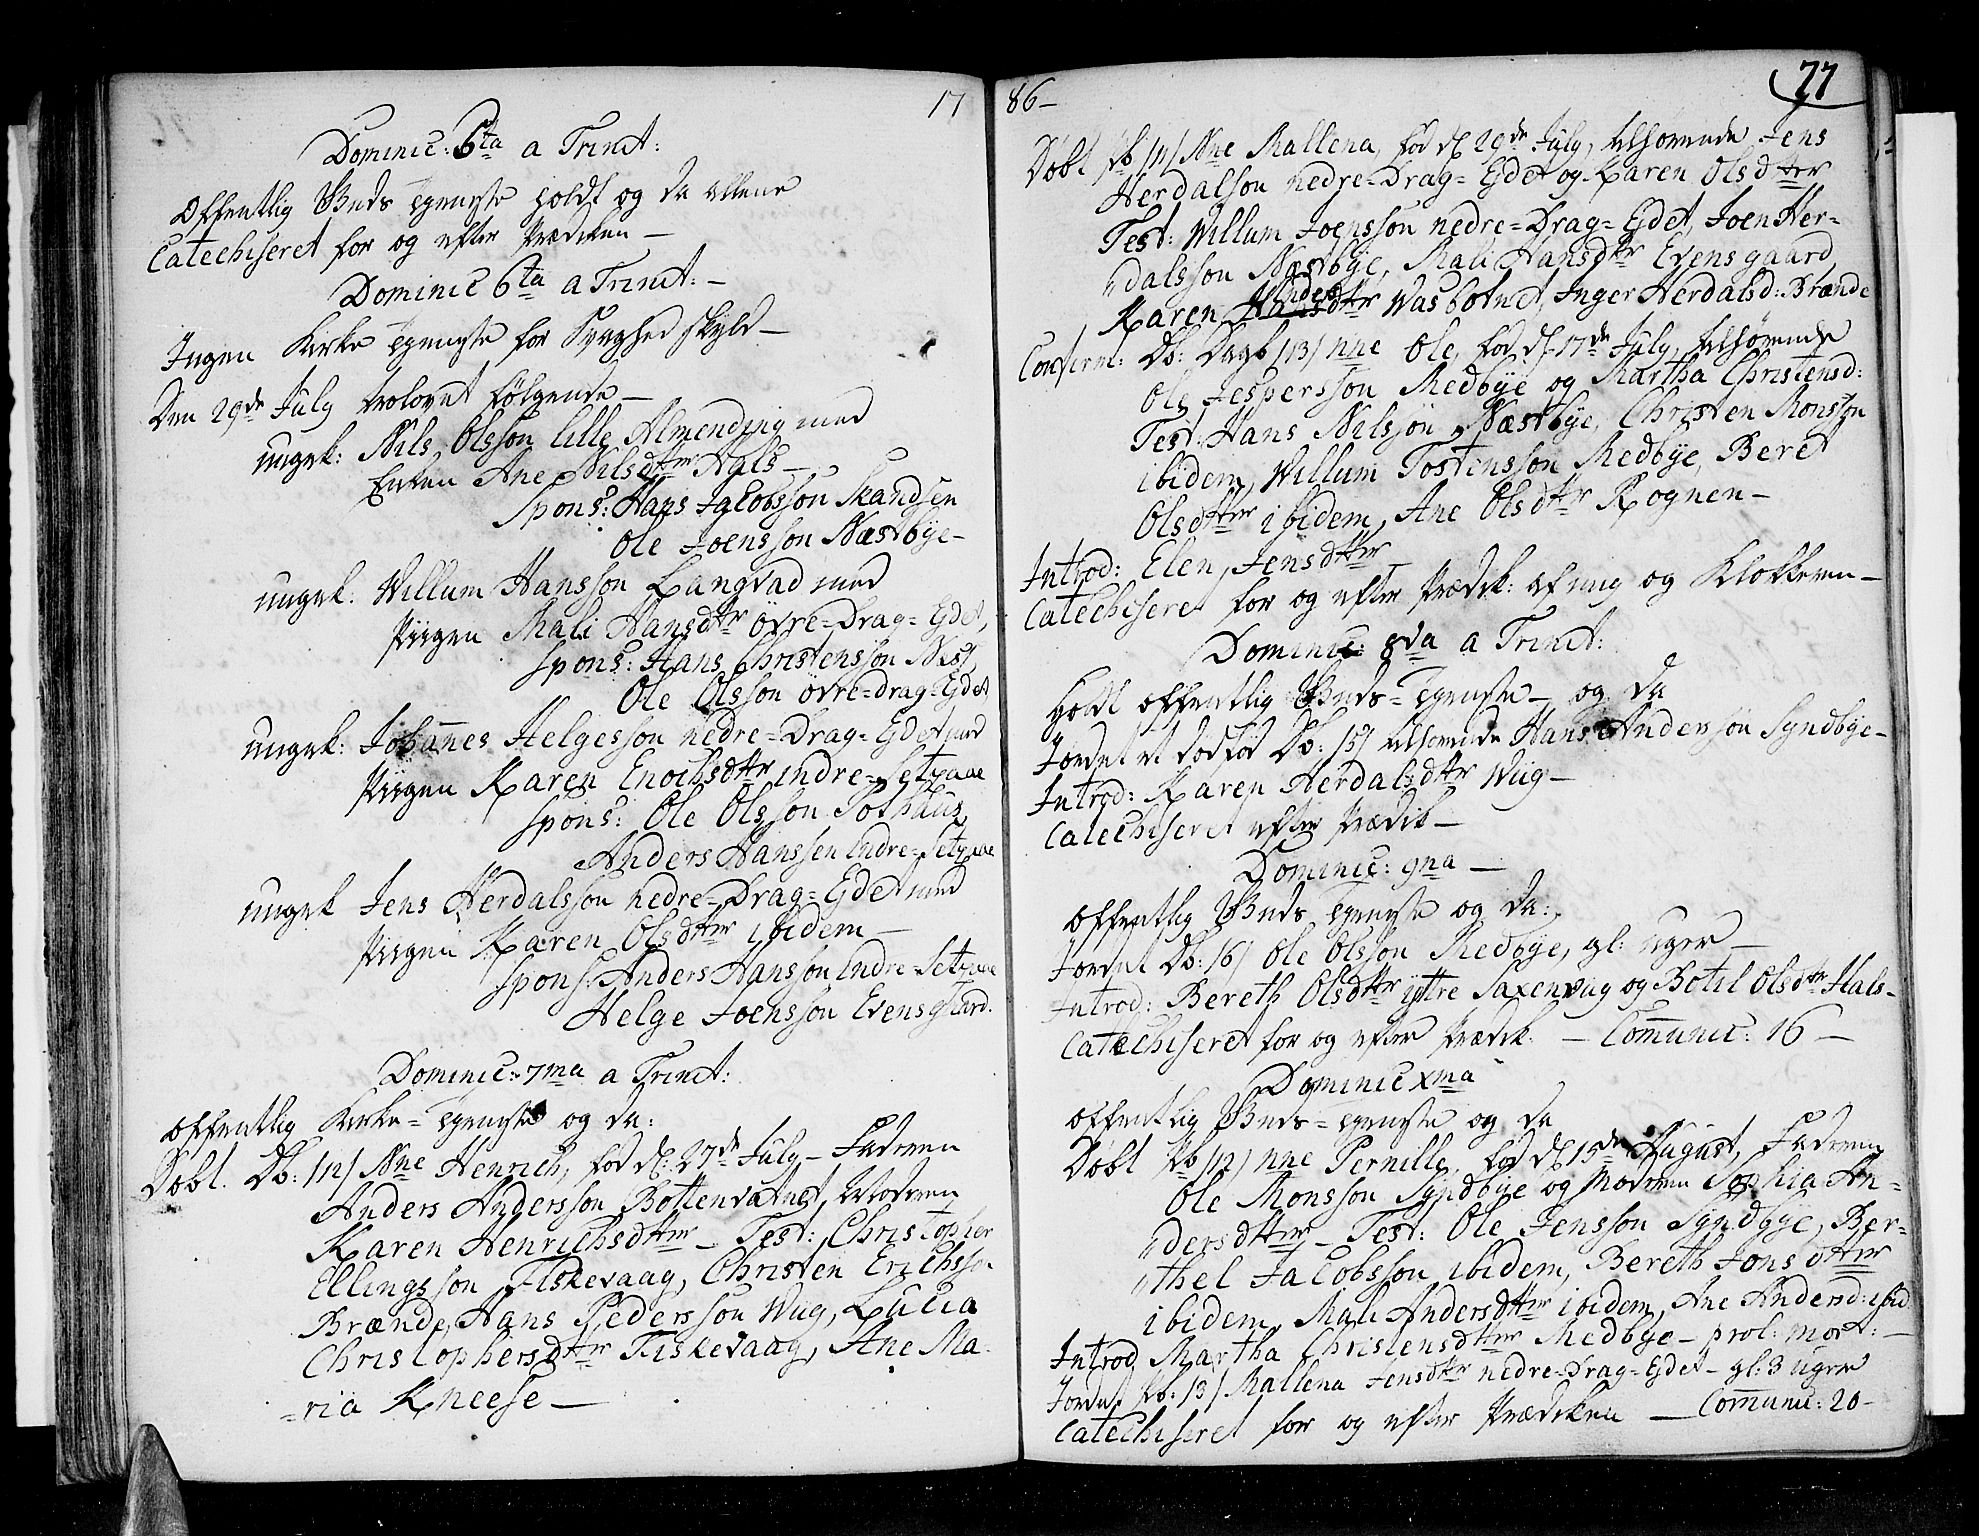 17
Dominic: 6ta a Trinit:
Offentlig Guds Tjeneste holdt og da allene
Catechiseret for og efter Prædiken —
Dominic 6ta a Trinit: —
Ingen Kirke Tjeneste for Svaghed skyld —
Den 29de July trolovet følgende —
ungk: Nils Olsson lille Almending med
Enken Ane Nilsdtter Hals —
Spons: Hans Jacobsson Skandsen
Ole Joensson Næstbye —
ungk: Willum Hansson Langvad med
Piigen Mali Hansdtr övre=Drag=Ejdet,
Spons: Hans Christensson Næst
Ole Olsson övre=drag=Ejdet
ungk: Johannes Helgesson nedre=Drag=Ejdet med
Piigen Karen Enochsdttr indre=Setvaae
Spons: Ole Olsson Pothaus
Anders Hanssen Indre=Setvaae
ungk Jens Herdalsson nedre=Drag=Ejdet med
Piigen Karen Olsdtter ibidem —
Spons: Anders Hansson Indre=Setvaae
Helge Joensson Evensgaard.
Dominic: 7ma a Trinit:
Offentlig Kirke=Tjeneste og da:
Døbt. Db: 12/ Nne Henrich, fød d: 27de July — Faderen
Anders Andersson Bottenvatnet, Moderen
Karen Henrichsdtter — Test: Christopher
Ellingsson Fiskevaag, Christen Erichsson
Brænde, Hans Pedersson Wiig, Lucia
Christophersdtr Fiskevaag, Ane Ma=
=ria Kneese —
86 —
77
Døbt Pb 11/ Nne Mallena, fød d 29de July, tilhørende Jens
Herdalson nedre=Drag=Ejdet og Karen Olsdtter
Test: Willum Joensson nedre=Drag=Ejdet, Joen Her=
"dalsson Næstbye, Mali Hansdtr Evensgaard,
Karen Hansdtr Wasbotnet, Inger Herdalsd: Brænde
Conferm: Db: Dagb 13/ nne Ole, fød d 17de July, tilhørende
Ole Jespersson Medbÿe og Martha Christensd:
Test: Hans Nilsson Næstbÿe, Christen Monsson
ibidem, Willum Tostensson Medbÿe, Beret
Olsdtter ibidem, Ane Olsdtr Rognen —
Introd: Elen Jensdtter
Catechiseret for og efter Prædik: af mig og Klokkeren —
Dominic: 8va a Trinit:
Holdt offentlig Guds=Tjeneste — og da
Jordet et dødfød Db: 15/ tilhørende Hans Anderson Syndbye —
Introd: Karen Herdalsdtr Wiig —
Catechiseret efter Prædik —
Dominic: 9na —
Offentlig Guds Tjeneste og da:
Jordet Db: 16/ Ole Olsson Medbÿe, gl: uger —
Introd: Bereth Olsdttr ÿttre Saxenvag og Botil Olsdtr Hals —
Catechiseret for og efter Prædik. — Communic: 16 —
Dominic xma
Offentlig Guds=Tjeneste og da
Døbt Pb 12/ nne Pernille, fød d 15de August, Faderen
Ole Monsson Syndbÿe og Moderen Sophia An=
"dersdtter — Test: Ole Jensson Syndbÿe, Ber=
"thel Jacobsson ibidem, Bereth Jonsdtter
ibidem, Mali Andersdtter ibidem, Ane Andersd: ibid:
Introd Martha Christensdtter Medbye — prol: mort: —
Jordet Pb: 13/ Mallena Jensdtr nedre=Drag=Ejdet — gl: 3 uger
Catechiseret for og efter Prædiken — Communic: 20 —